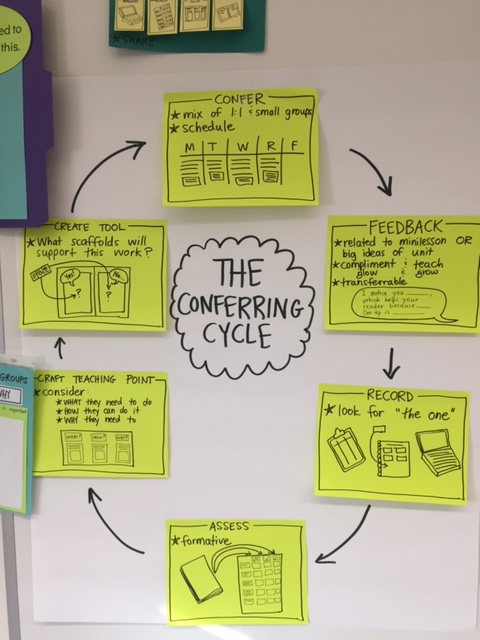 ed to
this.
★ share
CONFER
★ mix of 1:1 & small groups
★ schedule
M T W R F
FEEDBACK
★ related to minilesson OR
big ideas of unit
★ compliment & teach
glow & grow
★ transferrable
I notice you
which helps your
reader because
One tip is
RECORD
★ look for "the one"
ASSESS
★ formative
CRAFT TEACHING POINT
★ consider:
★ WHAT they need to do
★ HOW they can do it
★ WHY they need to
WHAT? HOW? WHY?
CREATE TOOL
★ What scaffolds will
support this work?
Yes! No.
? ?
THE
CONFERRING
CYCLE
GROUPS
WHY